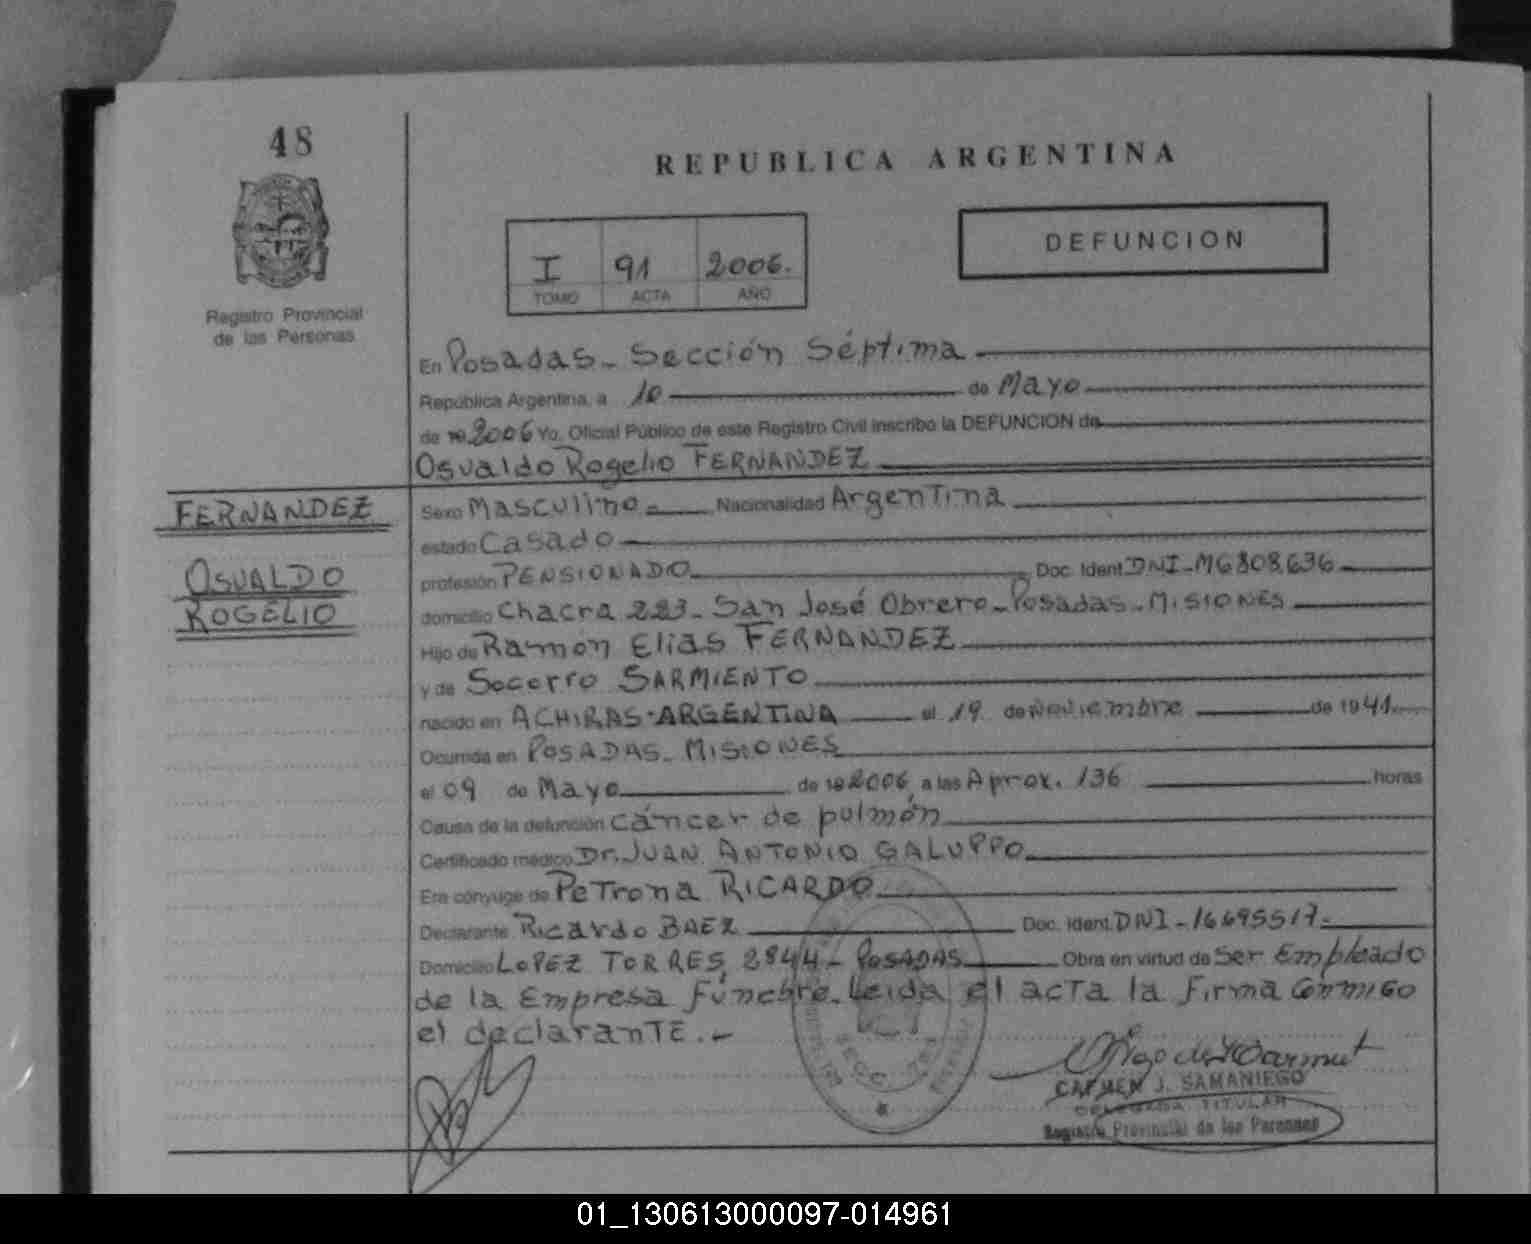 48
REPUBLICA ARGENTINA
DEFUNCION
I 91 2006.
TOMO ACTA AÑO
Registro Provincial
de las Personas
En Posadas - Sección Séptima
República Argentina, a 10 de Mayo
de 19 2006 Yo, Oficial Público de este Registro Civil inscribo la DEFUNCION de
Osvaldo Rogelio FERNANDEZ
FERNANDEZ
OSVALDO
ROGELIO
Sexo Masculino Nacionalidad Argentina
estado Casado
profesión PENSIONADO Doc. Ident. DNI-M6808.636
domicilio Chacra 223 - San José Obrero - Posadas - MISIONES
Hijo de Ramón Elias FERNANDEZ
y de Socorro SARMIENTO
nacido en ACHIRAS - ARGENTINA el 19 de Noviembre de 1941
Ocurrida en POSADAS - MISIONES
el 09 de Mayo de 19 2006 a las Aprox. 136 horas
Causa de la defunción cáncer de pulmón
Certificado médico Dr. JUAN ANTONIO GALUPPO
Era cónyuge de Petrona RICARDO
Declarante Ricardo BAEZ Doc. Ident. DNI - 16695517
Domicilio LOPEZ TORRES 2844 - POSADAS Obra en virtud de Ser Empleado
de la Empresa Fúnebre. Leida el acta la firma Conmigo
el declarante.-
CARMEN J. SAMANIEGO
DELEGADA TITULAR
Registro Provincial de las Personas
01_130613000097-014961